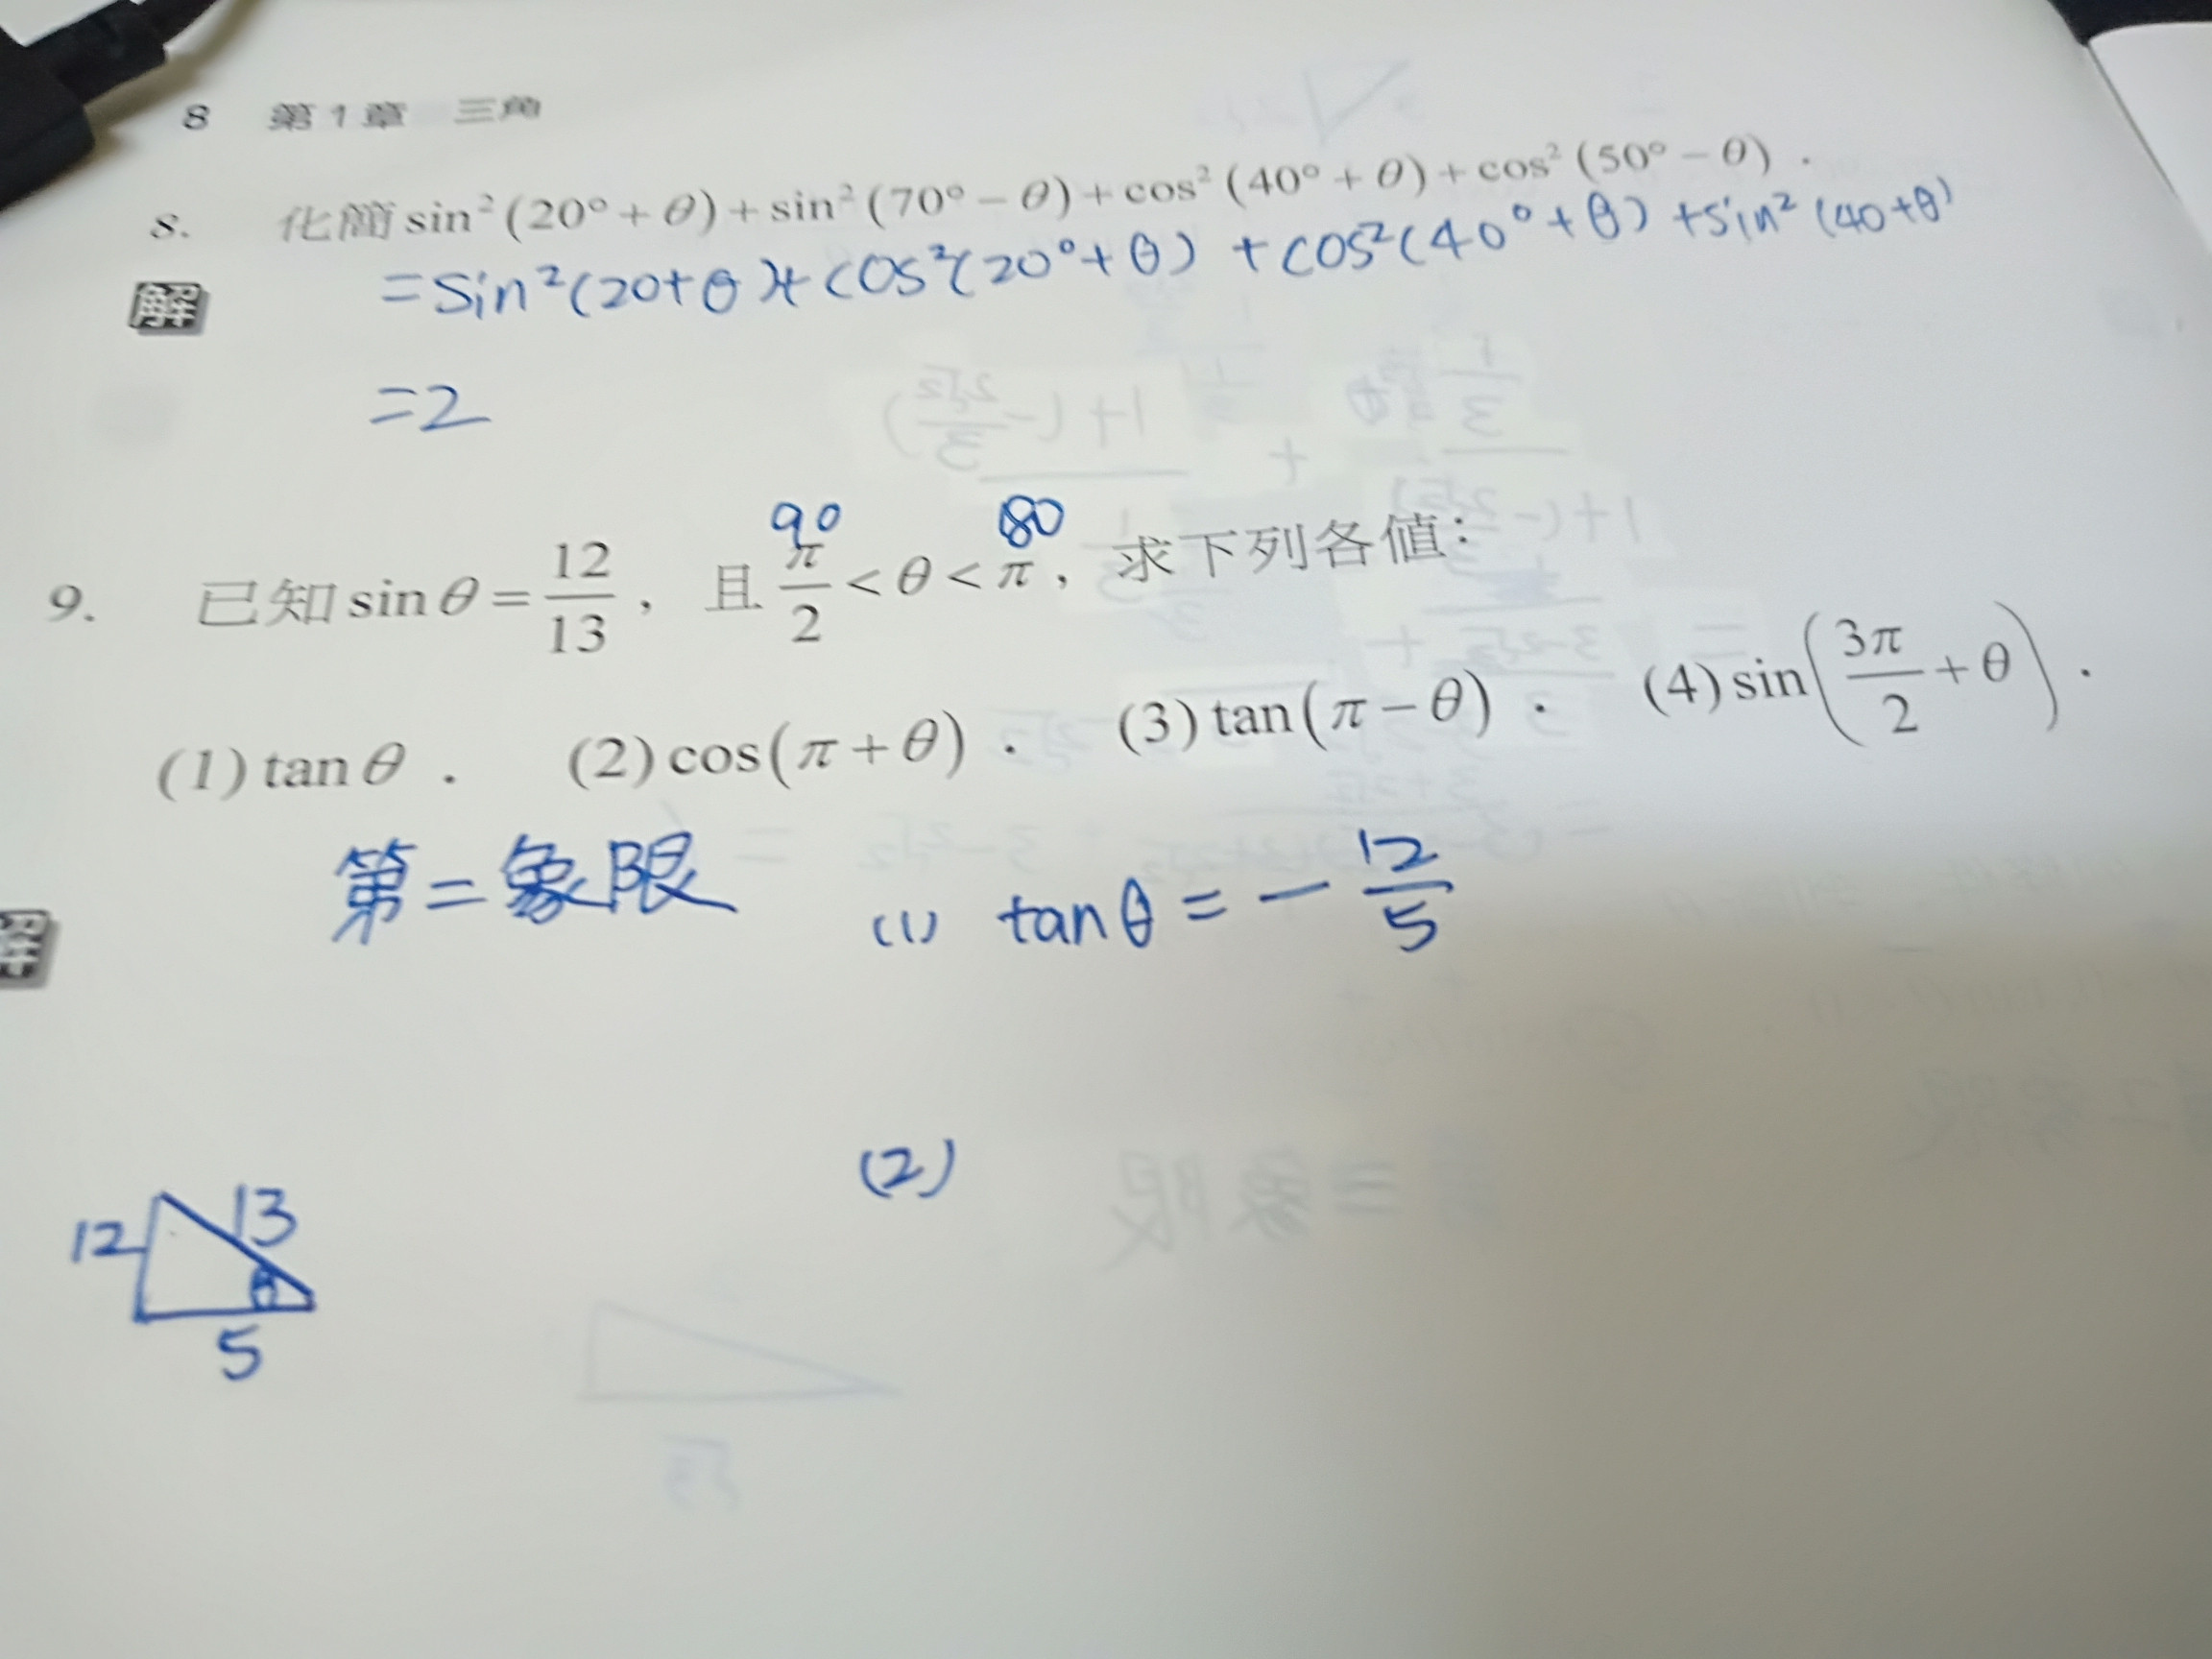 8 第1章 三角
8. 化簡 sin²(20°+θ)+sin²(70°−θ)+cos²(40°+θ)+cos²(50°−θ).
解 =sin²(20+θ)+cos²(20°+θ)+cos²(40°+θ)+sin²(40+θ)
=2
90 180
9. 已知 sinθ=12/13, 且 π/2<θ<π, 求下列各值:
(1) tanθ. (2) cos(π+θ). (3) tan(π−θ). (4) sin(3π/2+θ).
解 第二象限 (1) tanθ = −12/5
(2)
12 13
θ
5